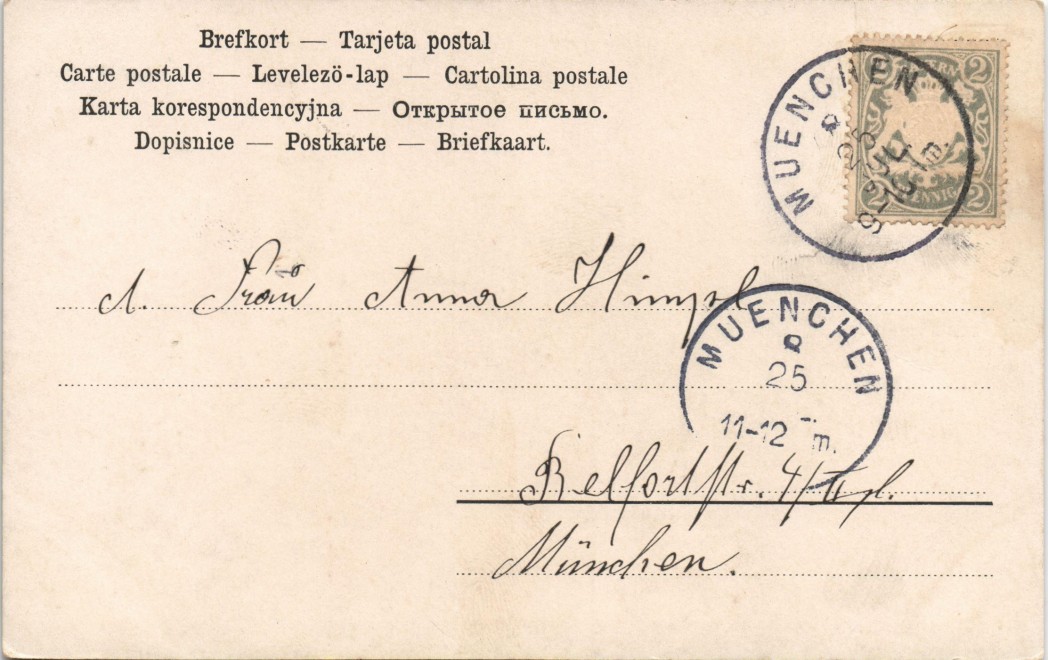 Brefkort — Tarjeta postal
Carte postale — Levelező-lap — Cartolina postale
Karta korespondencyjna — Открытое письмо.
Dopisnice — Postkarte — Briefkaart.
MUENCHEN
25
JUL
9-10
m.
BAYERN
2 2
2 PFENNIG 2
A. Frau Anna Himpsl
MUENCHEN
25
11-12 m.
Belfortstr. 4/II
München.